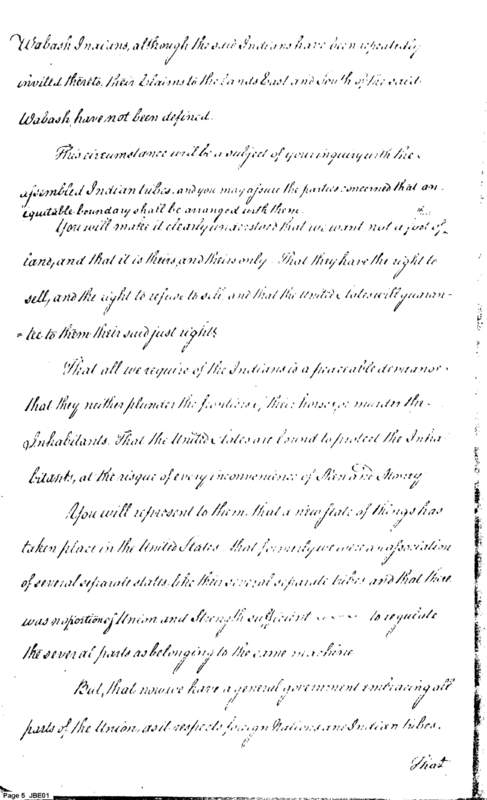 Wabash Indians, although the said Indians have been repeatedly
invited thereto, their Claims to the lands East and South of the said
Wabash, have not been defined.
This circumstance will be a subject of your inquiry with the
assembled Indian tribes, and you may assure the parties concerned that an
equitable boundary shall be arranged with them.
You will make it clearly understood that we want not a foot of
land, and that it is theirs, and theirs only. That they have the right to
sell, and the right to refuse to sell, and that the United States will guaran-
=tee to them their said just right.
That all we require of the Indians is a peaceable demeanor
that they neither plunder the frontiers of their horses, or murder the
Inhabitants. That the United States are bound to protect the Inha
bitants, at the risque of every inconvenience of Men and Money
You will represent to them, that a new State of things has
taken place in the United States. that formerly we were an association
of several separate states, like their several separate tribes and that there
was no portion of Union and Strength sufficient to regulate
the several parts as belonging to the same machine.
But, that now we have a general government embracing all
parts of the Union, as it respects foreign Nations and Indian tribes.
That
Page 5 JBE01